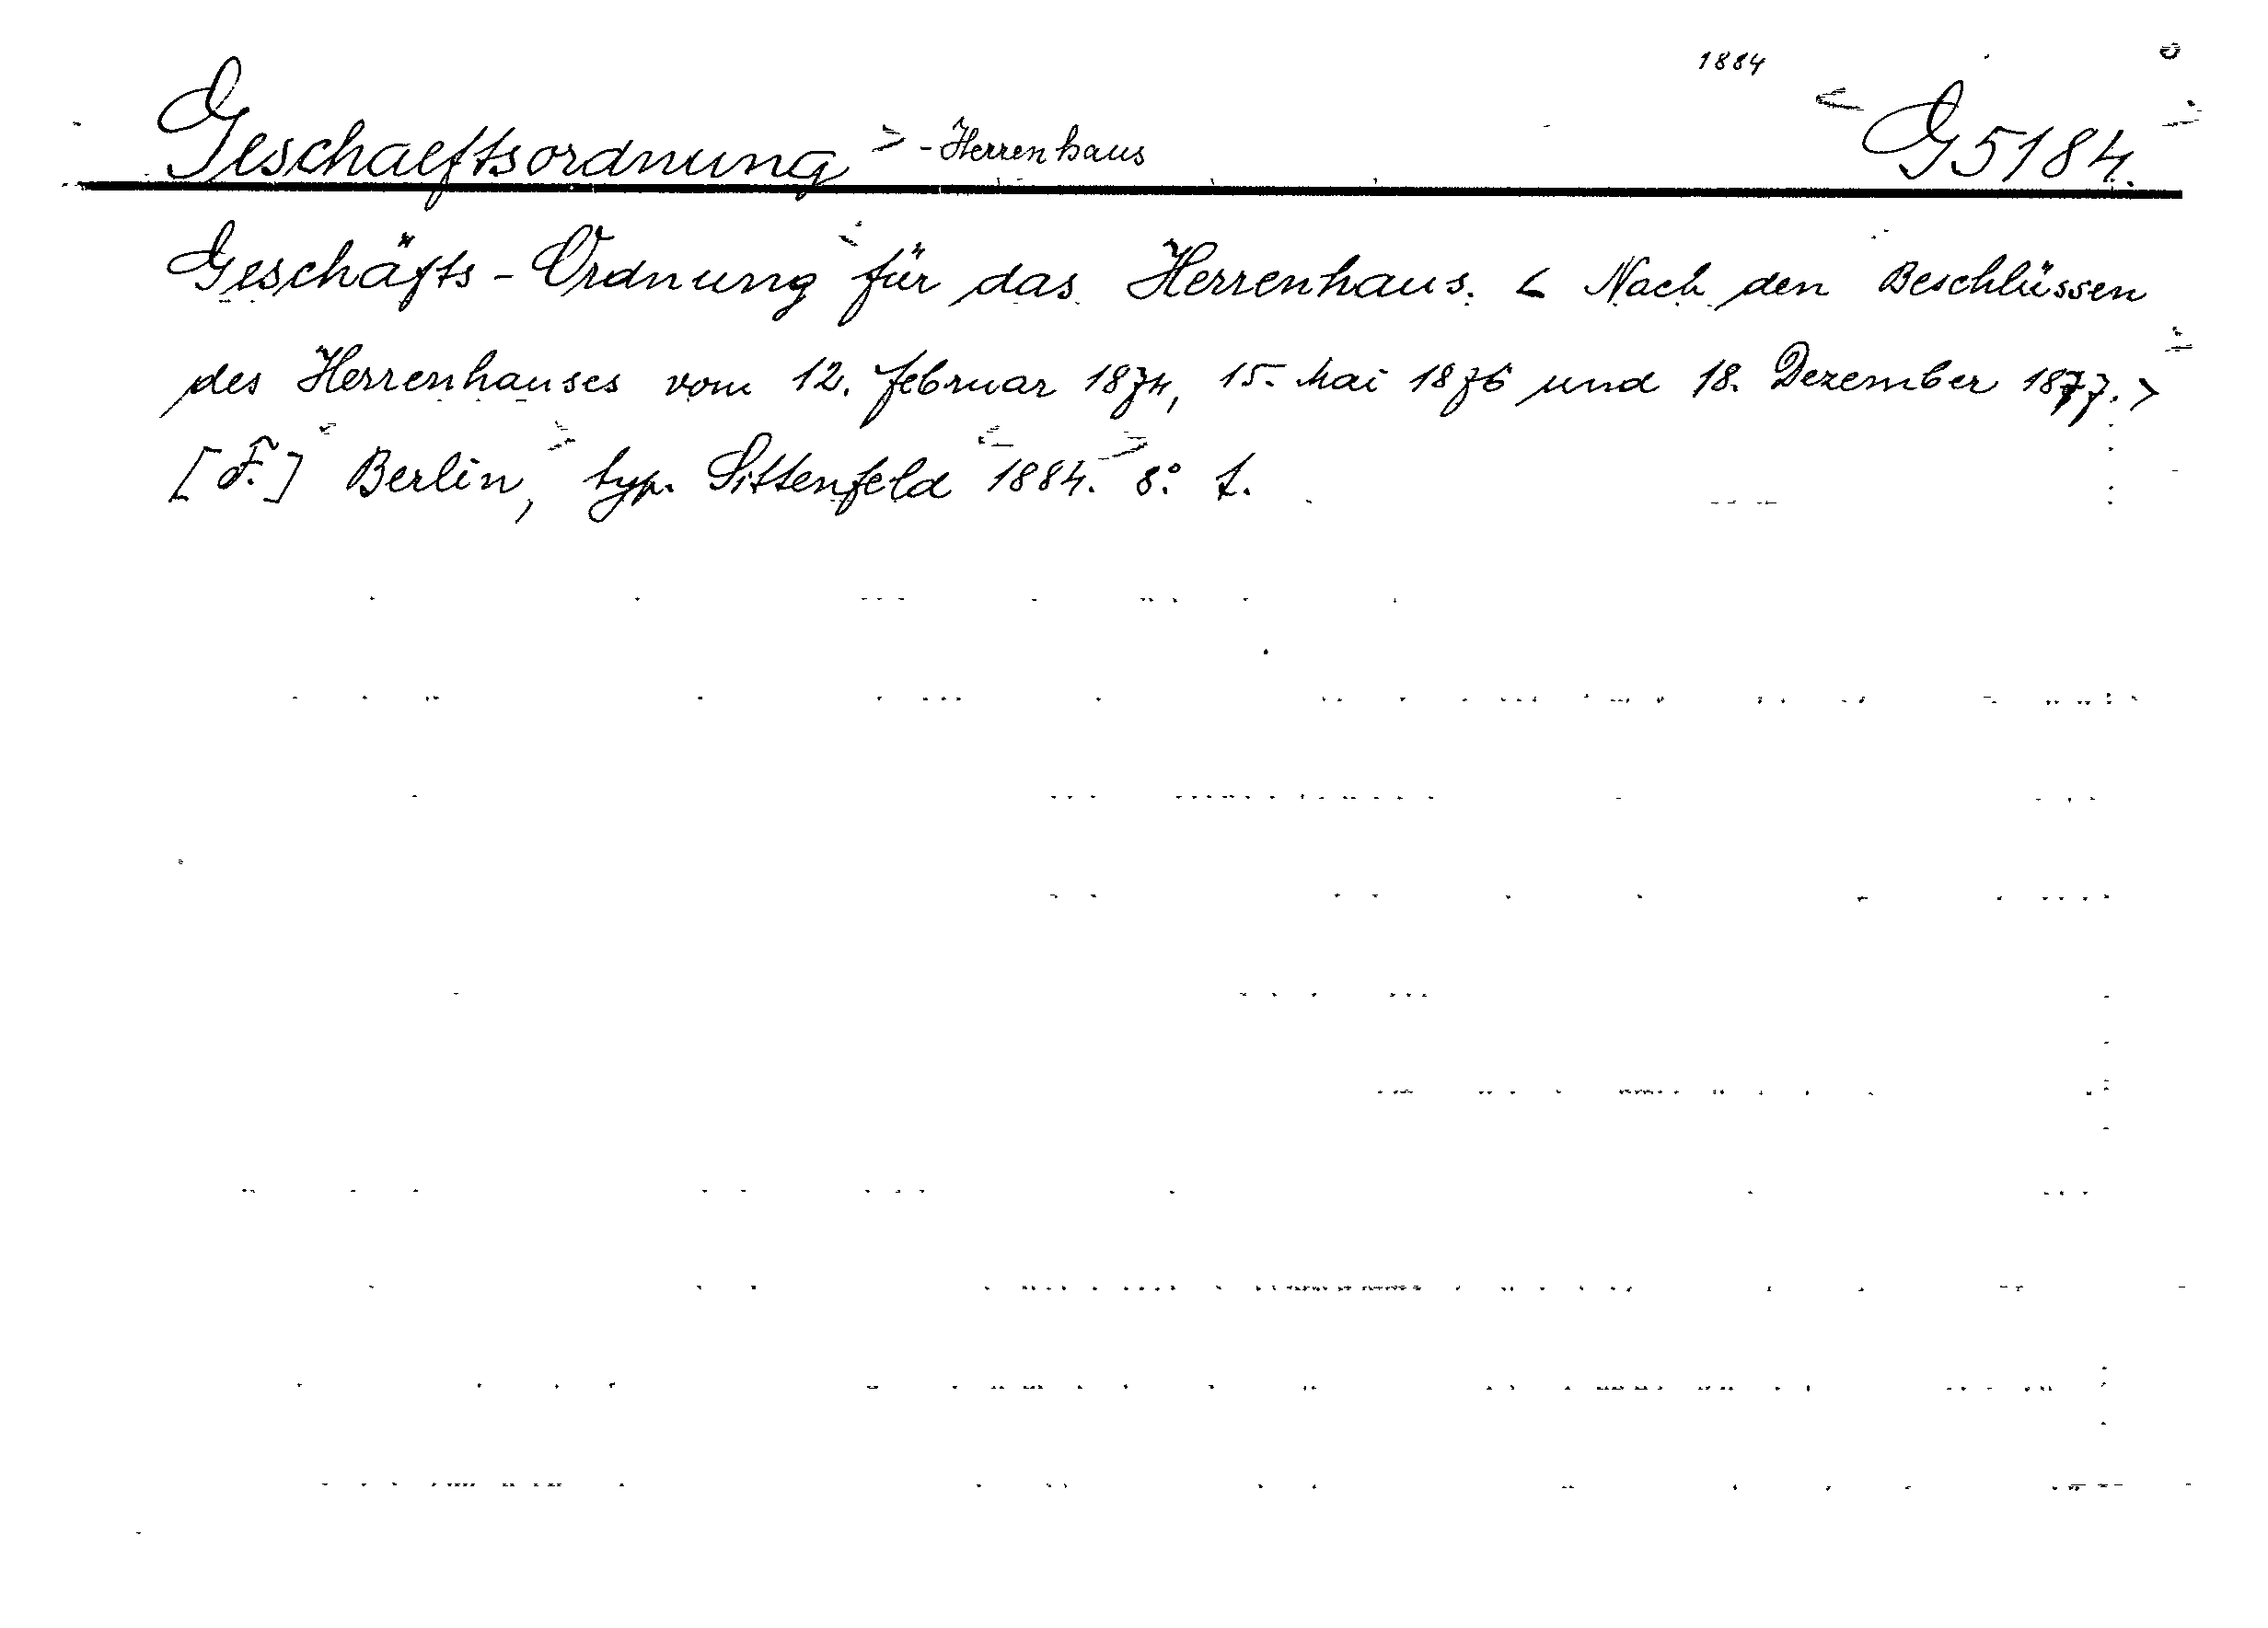 1884
Geschaeftsordnung > - Herrenhaus < G5184.
Geschäfts-Ordnung für das Herrenhaus. < Nach den Beschlüssen
des Herrenhauses vom 12. Februar 1874, 15. Mai 1876 und 18. Dezember 1877. >
[F.] Berlin, typ. Sittenfeld 1884. 8.°